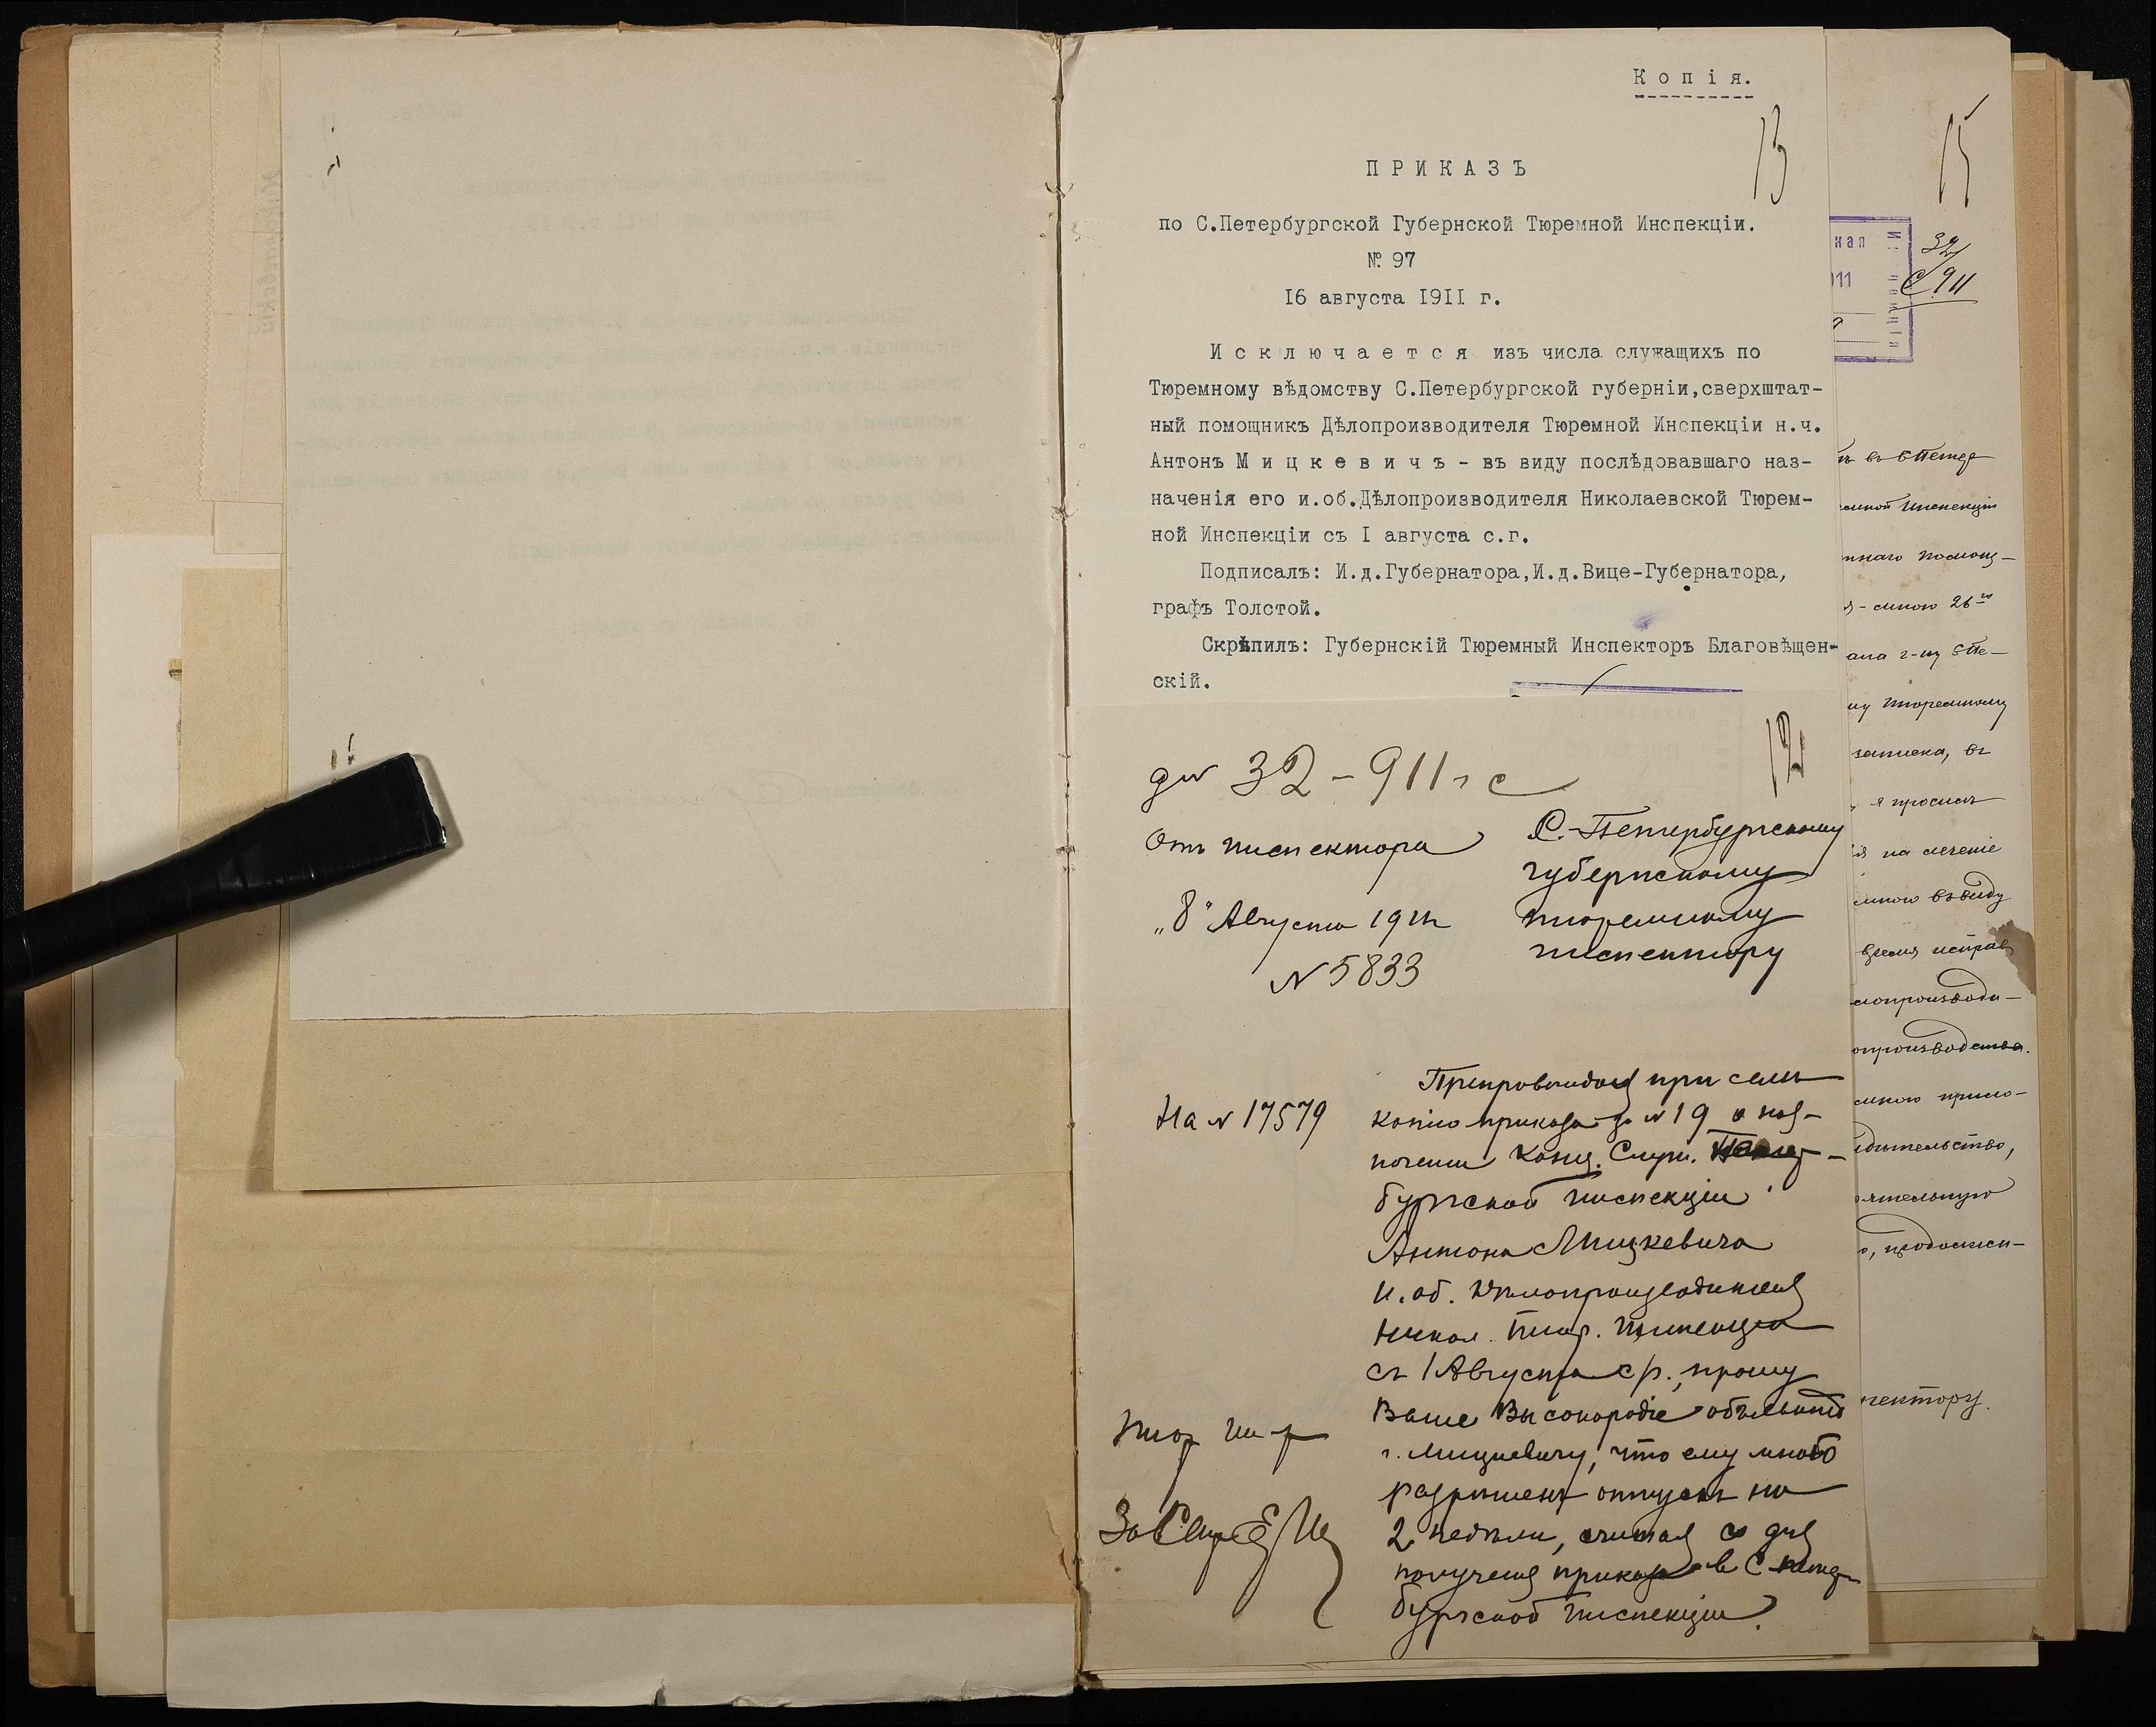 Копія.
13
ПРИКАЗЪ
по С.Петербургской Губернской Тюремной Инспекціи.
№ 97
16 августа 1911 г.
Исключается изъ числа служащихъ по
Тюремному вѣдомству С.Петербургской губерніи,сверхштат-
ный помощникъ Дѣлопроизводителя Тюремной Инспекціи н.ч.
Антонъ Мицкевичъ - въ виду послѣдовавшаго наз-
наченія его и.об.Дѣлопроизводителя Николаевской Тюрем-
ной Инспекціи съ I августа с.г.
Подписалъ: И.д.Губернатора,И.д.Вице-Губернатора,
графъ Толстой.
Скрѣпилъ: Губернскій Тюремный Инспекторъ Благовѣщен-
скій.
12
32 - 911 г
Отъ Инспектора
"8" Августа 1911
N 5833
С.-Петербургскому
Губернскому
Тюремному
Инспектору
На N 17579
Препровождая при семъ
копію приказа за N 19 о наз-
наченіи канц. Служ.
бургской Инспекціи
Антона Мицкевича
И. об. Дѣлопроизводителя
Никол. Тюр. Инспекціи
съ 1 Августа с/г., прошу
Ваше Высокородіе объявить
г. Мицкевичу, что ему мною
разрѣшенъ отпускъ на
2 недѣли, считая со дня
полученія приказа в С-Петер-
бургской Инспекціи.
15
32
911
кая
911
въ СПетер
Инспекціи
ннаго помощ-
- мною 26го
г-ну СПе-
му Тюремному
записка, въ
я просилъ
на леченіе
мною ввиду
время исправ
лопроизводи-
опроизводства.
мною прило-
дѣтельство,
ятельную
пектору.